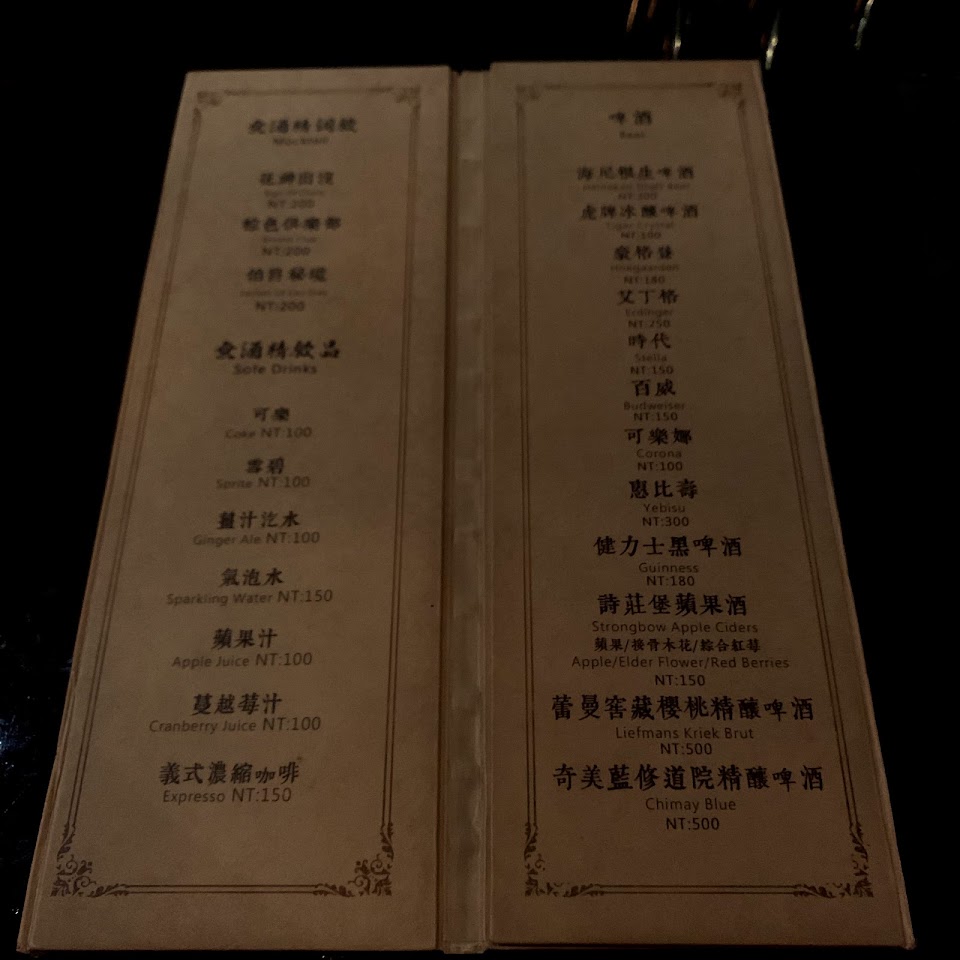 無酒精調飲
Mocktail
NT:200
棕色俱樂部
Brown Club
NT:200
伯爵秘境
NT:200
無酒精飲品
Sofe Drinks
可樂
Coke NT:100
雪碧
Sprite NT:100
薑汁汔水
Ginger Ale NT:100
氣泡水
Sparkling Water NT:150
蘋果汁
Apple Juice NT:100
蔓越莓汁
Cranberry Juice NT:100
義式濃縮咖啡
Expresso NT:150
啤酒
Beer
海尼根生啤酒
Heineken Draft Beer
NT:200
虎牌冰釀啤酒
Tiger Crystal
NT:100
豪格登
Hoegaarden
NT:180
艾丁格
Erdinger
NT:250
時代
Stella
NT:150
百威
Budweiser
NT:150
可樂娜
Corona
NT:100
惠比壽
Yebisu
NT:300
健力士黑啤酒
Guinness
NT:180
詩莊堡蘋果酒
Strongbow Apple Ciders
蘋果/接骨木花/綜合紅莓
Apple/Elder Flower/Red Berries
NT:150
蕾曼窖藏櫻桃精釀啤酒
Liefmans Kriek Brut
NT:500
奇美藍修道院精釀啤酒
Chimay Blue
NT:500